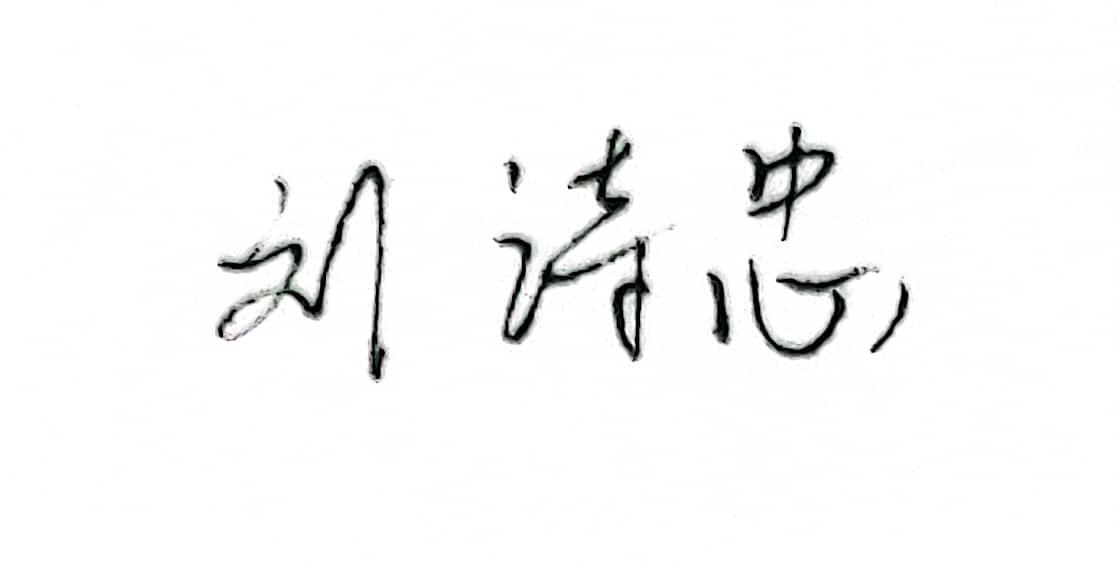 刘诗忠